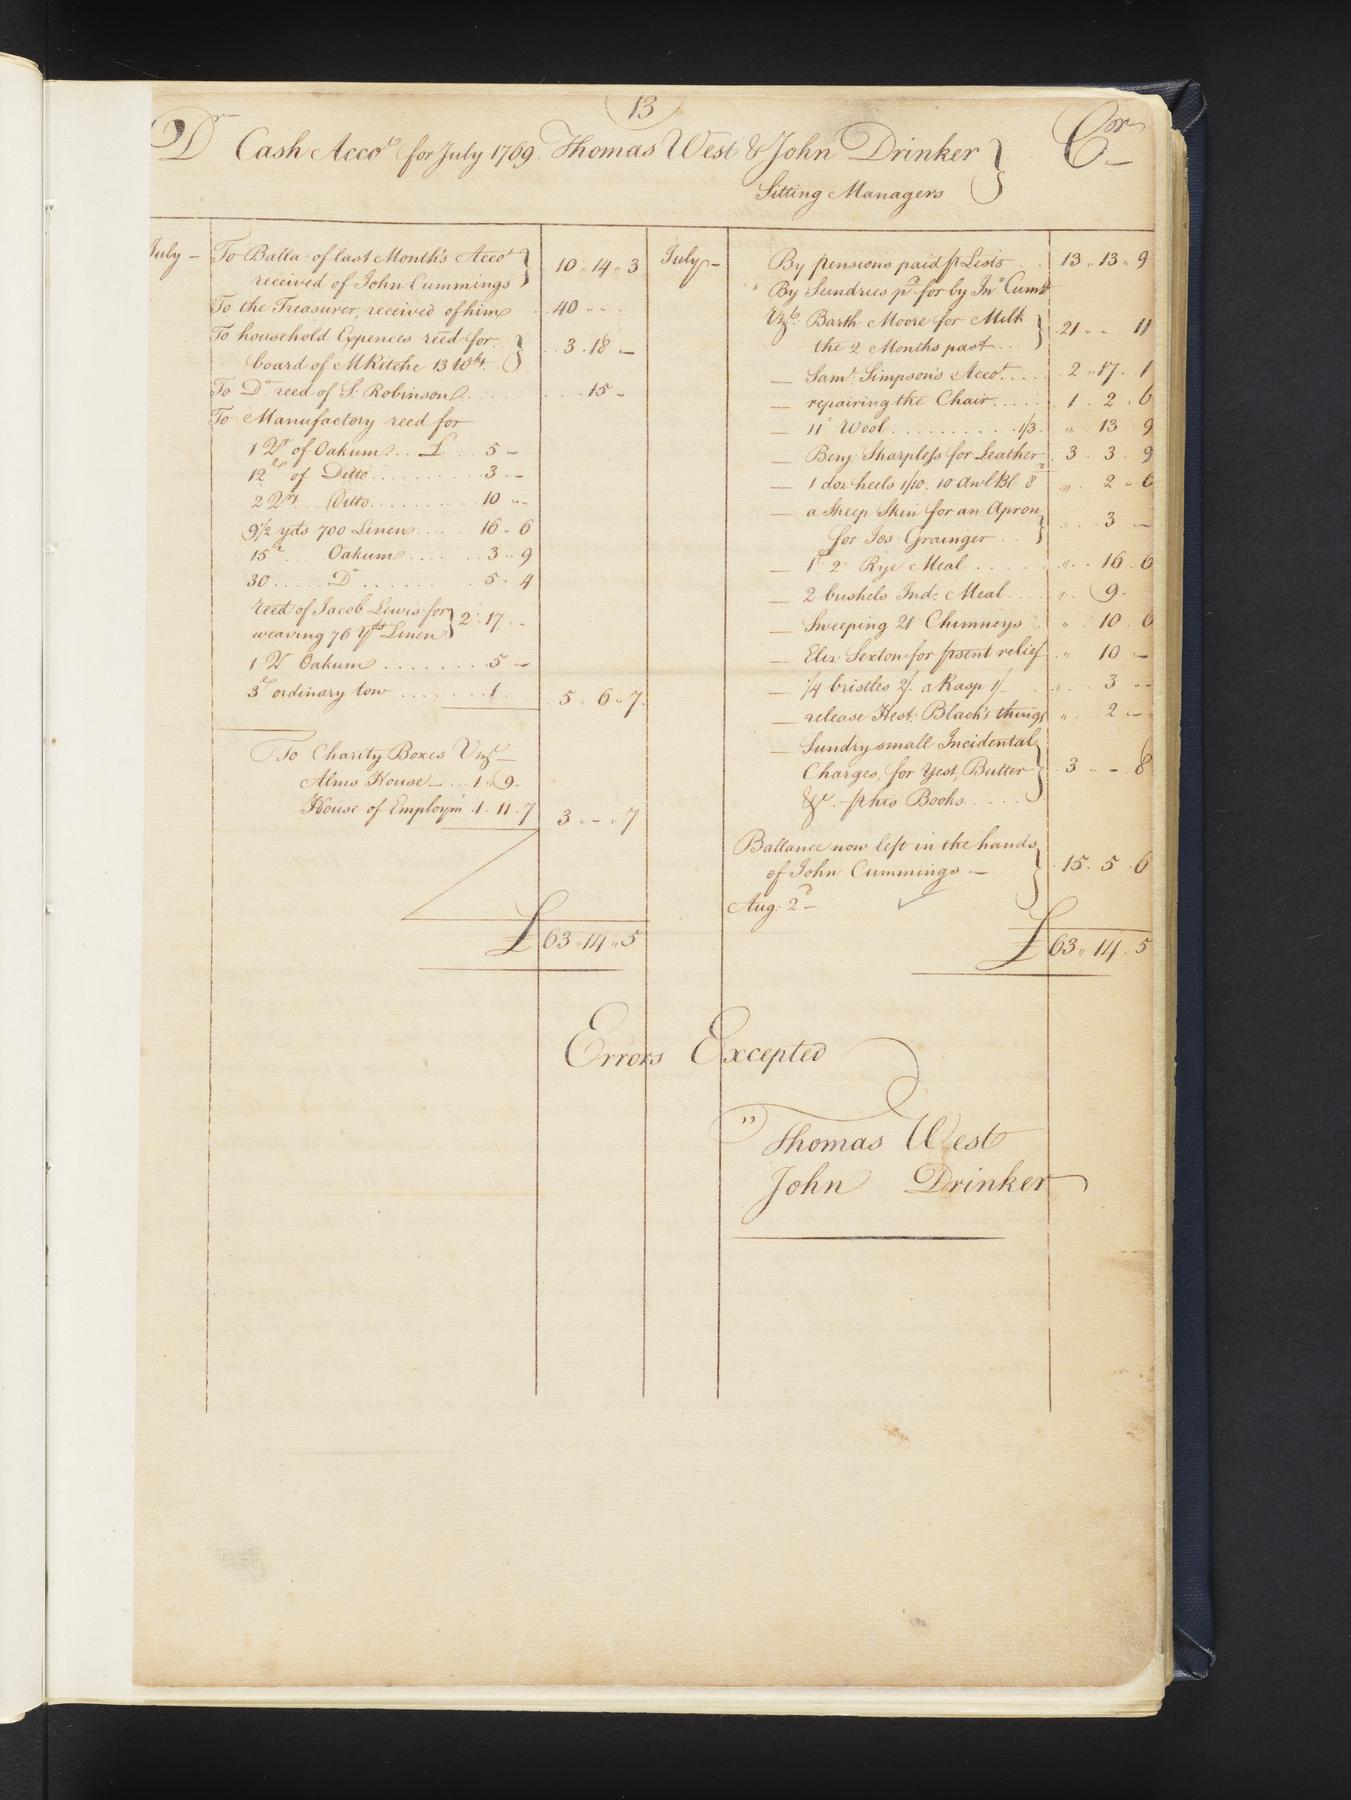 13
Dr Cash Acco.t for July 1769. Thomas West & John Drinker Cr
Sitting Managers
July – To Balla: of last Month's Acco.t
received of John Cummings 10 „ 14 „ 3
To the Treasurer, received of him 40 „ – „
To household Expences reed for
board of M Kitche 13 Wks. 3 . 18 „ –
To Do. reed of S. Robinson 15 –
To Manufactory reed for
1 Ct of Oakum £ 5 –
12 lb of Ditto 3 –
2 Qrs Ditto 10 –
9 1/2 yds 700 Linen 16 „ 6
15 lb Oakum 3 „ 9
30 Do 5 „ 4
reed of Jacob Lewis for
weaving 76 Yds Linen 2 „ 17 –
1 Ct Oakum 5 –
3 lb ordinary tow 1 . 5 „ 6 „ 7
To Charity Boxes Vizt –
Alms House – 1 „ 9 .
House of Employm 1 . 11 . 7 3 „ – „ 7
£ 63 „ 14 „ 5
July – By pensions paid p Lists 13 „ 13 „ 9
By Sundries pd for by Jno Cums
Vizt: Barth Moore for Milk
the 2 Months past 21 „ – 11
– Saml Simpson's Accot 2 „ 17 . 1
– repairing the Chair 1 . 2 . 6
– 11 lb Wool 1/3 „ 13 9
– Benj Sharpless for Leather 3 . 3 . 9
– 1 doz heels 1/10. 10 Awl Bl 8d „ 2 – 6
– a Sheep Skin for an Apron
for Jos Grainger 3 –
– 1 Ct 2 Rye Meal „ 16 . 6
– 2 bushels Ind: Meal „ 9 .
– Sweeping 21 Chimneys „ 10 . 6
– Eliz: Sexton for psent relief „ 10 –
– 1/4 bristles 2/. a Rasp 1/ „ 3 –
– release Hest: Black's things „ 2 –
– Sundry small Incidental
Charges, for Yest, Butter
&c. – p his Books 3 – – 8
Ballance now left in the hands
of John Cummings – 15 . 5 . 6
Aug: 2d –
£ 63 „ 14 . 5
Errors Excepted
Thomas West
John Drinker